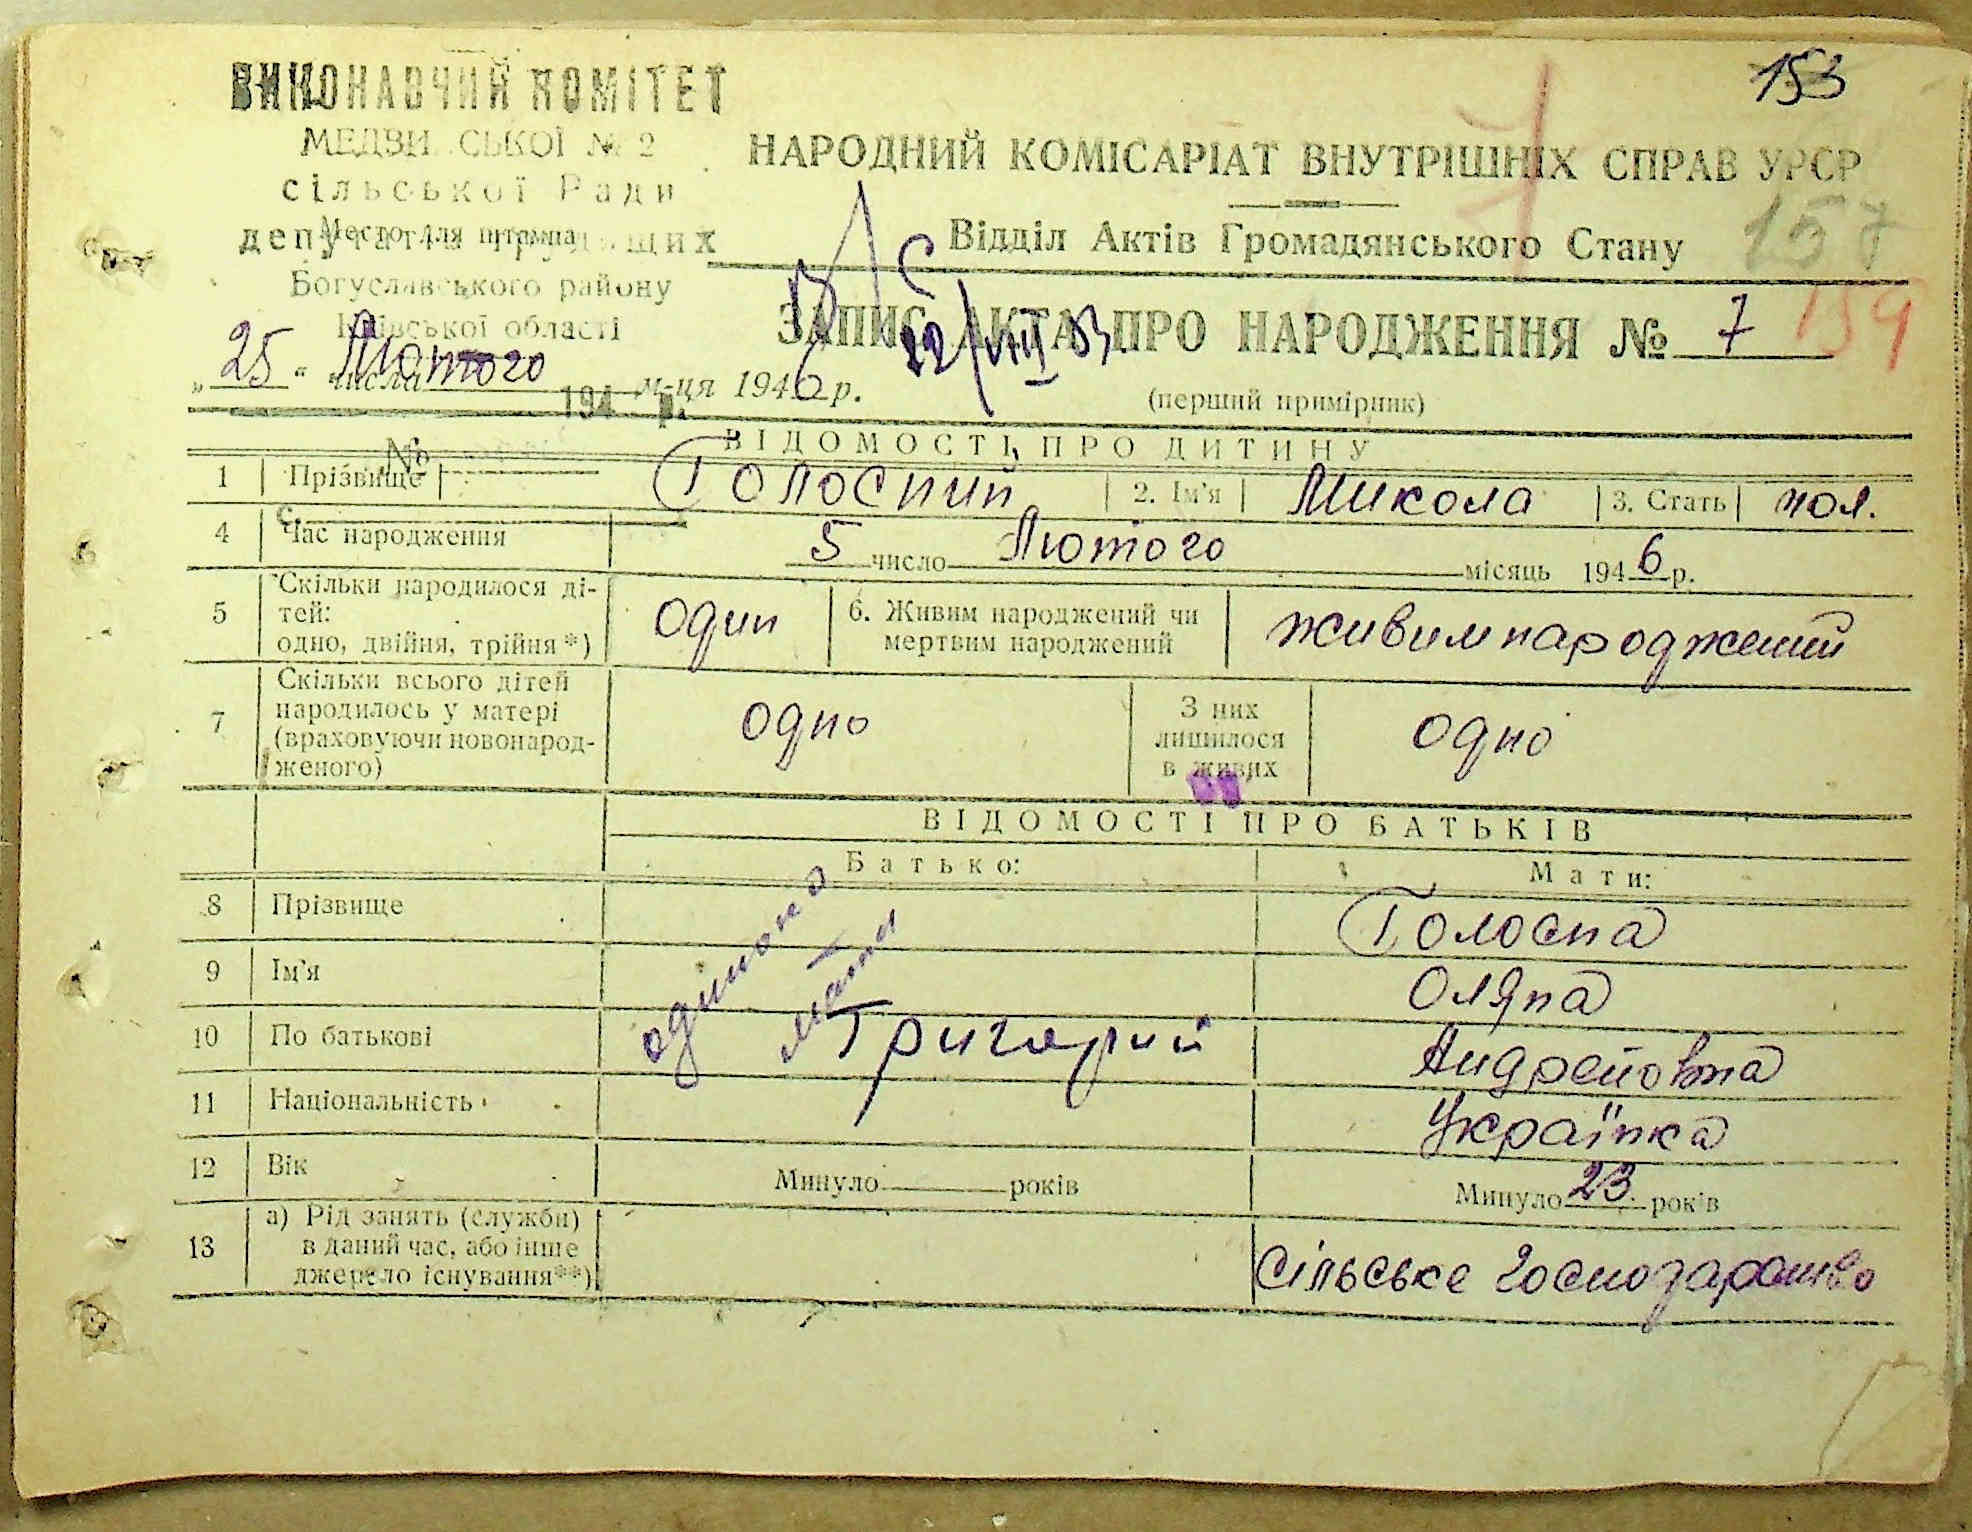 ВИКОНАВЧИЙ КОМІТЕТ
МЕДВИ СЬКОЇ № 2
сільської Ради
депутатів трудящих
Место для штампа
Богуславського району
Київської області
194 р.
№
153
НАРОДНИЙ КОМІСАРІАТ ВНУТРІШНІХ СПРАВ УРСР
Відділ Актів Громадянського Стану
157
159
ЗАПИС АКТА ПРО НАРОДЖЕННЯ № 7
22/VIII 53.
„ 25 " числа Лютого м-ця 1946 р.
(перший примірник)
ВІДОМОСТІ ПРО ДИТИНУ
1 Прізвище Голосний 2. Ім'я Микола 3. Стать чол.
4 Час народження 5 число Лютого місяць 1946 р.
5 Скільки народилося ді-
тей:
одно, двійня, трійня *)
один
6. Живим народжений чи
мертвим народжений
живимнароджений
7 Скільки всього дітей
народилось у матері
(враховуючи новонарод-
женого)
одно
З них
лишилося
в живих
одно
ВІДОМОСТІ ПРО БАТЬКІВ
Батько: Мати:
8 Прізвище Голосна
9 Ім'я Оляна
одинока
мати
10 По батькові Григорий Андреївна
11 Національність Українка
12 Вік Минуло років Минуло 23 років
13 а) Рід занять (служби)
в даний час, або інше
джерело існування**)
сільське господарство